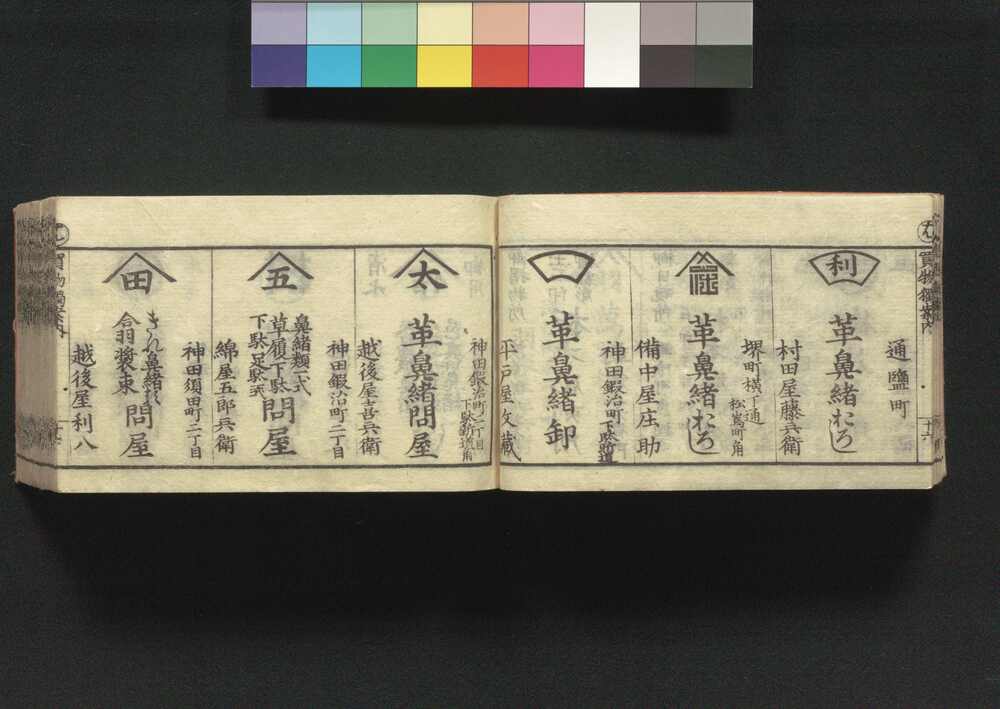 通鹽町
利
革鼻緒おろし
村田屋藤兵衛
堺町横丁通
松嶌町角
革鼻緒おろし
備中屋庄助
神田鍜冶町
下駄新道
一
革鼻緒卸
平戸屋
神田鍜冶町二丁目
下駄新道角
太
革鼻緒問屋
越後屋吉兵衛
神田鍜冶町二丁目
五
鼻緒類一式
草履下駄
下駄足駄
問屋
綿屋五郎兵衛
神田須田町二丁目
田
きれ鼻緒
装束
問屋
越後屋利八
買物獨案内
十六